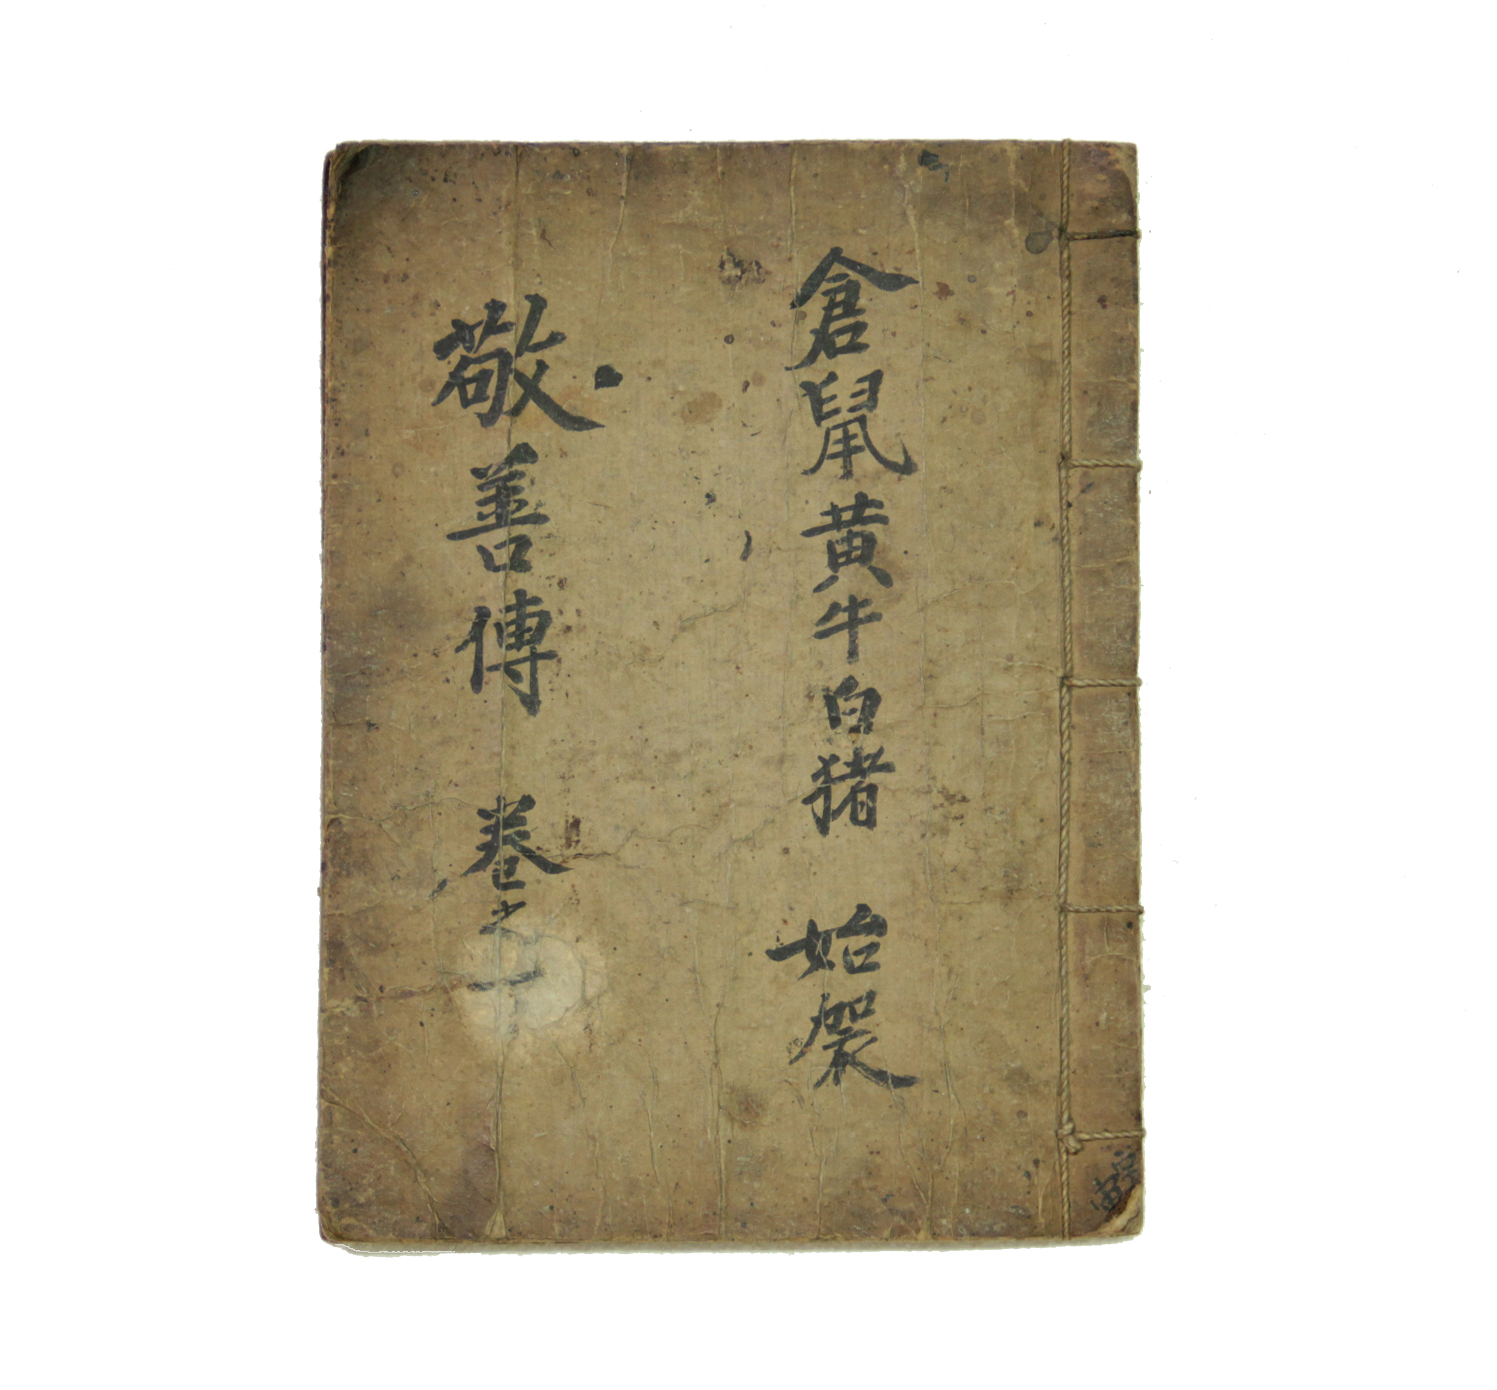 倉鼠黄牛白猪 始
敬善傳 卷之一